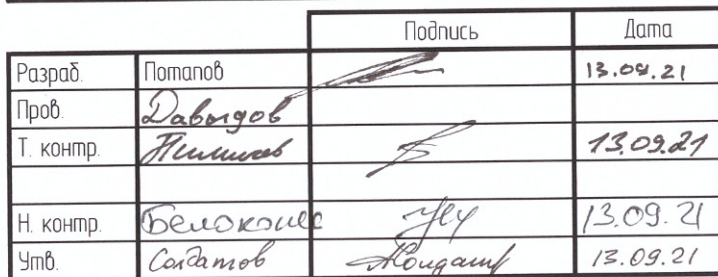 Подпись Дата
Разраб. Потапов 13.09.21
Пров. Давыдов
Т. контр. 13.09.21
Н. контр. 13.09.21
Утв. Солдатов 13.09.21